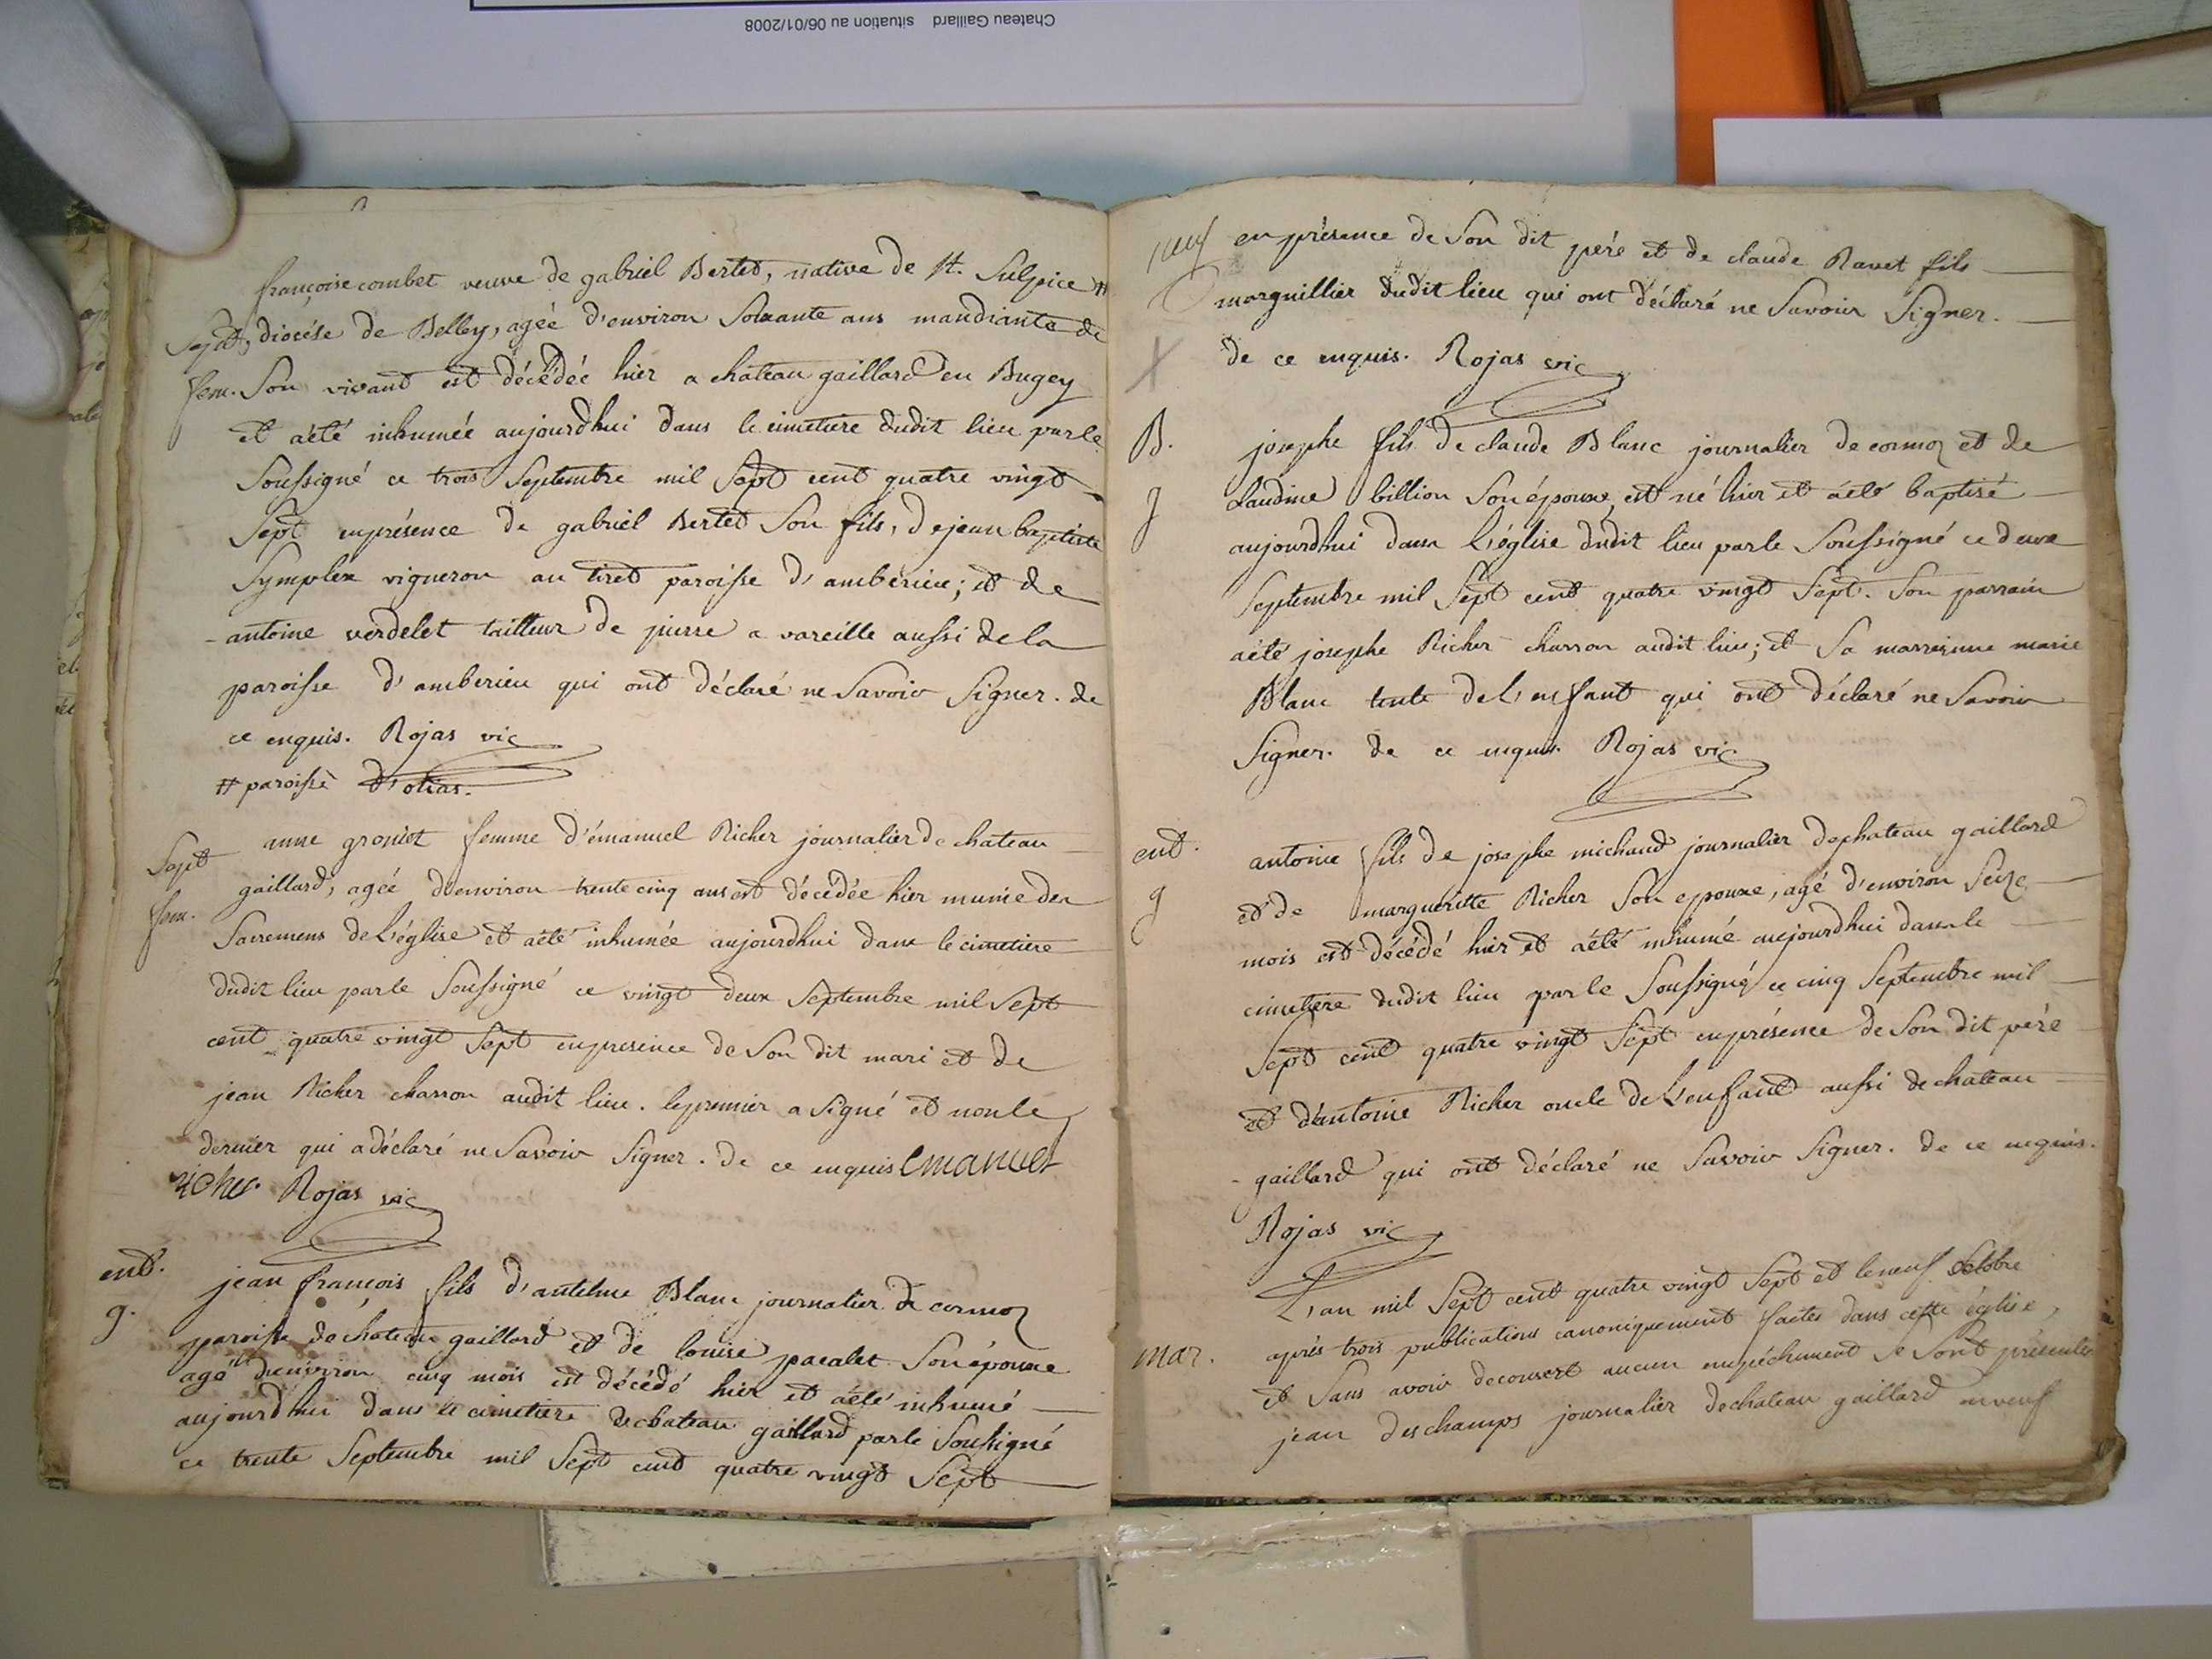 Chateau Gaillard situation au 06/01/2008
françoise combet veuve de gabriel Bertet, native de St. Sulpice #
Sept, diocése de Belley, agée d'environ Soixante ans mandiante de
fem. Son vivant est décédée hier a chateau gaillard en Bugey
et aété inhumée aujourdhui dans le cimetiere dudit lieu parle
Soussigné ce trois Septembre mil Sept cent quatre vingt
Sept enprésence de gabriel Bertet Son fils, dejean baptiste
Symplex vigneron au tiret paroisse d'amberieu; et de
antoine verdelet tailleur de pierre a vareille aussi dela
paroisse d'amberieu qui ont déclaré ne Savoir Signer. de
ce enquis. Rojas vic
# paroisse d'
Sept anne femme d'émanuel Richer journalier de chateau
fem. gaillard, agée d'environ trente cinq ans est décédée hier munie des
Sacremens de L'église et aété inhumée aujourdhui dans le cimetiere
dudit lieu parle Soussigné ce vingt deux Septembre mil Sept
cent quatre vingt Sept enpresence de Son dit mari et de
jean Richer charron audit lieu. lepremier a Signé et nonle
dernier qui adéclaré ne Savoir Signer. de ce enquis Emanuel
richer Rojas vic
ent. jean françois fils d'antelme Blanc journalier de cormoz
g. paroisse de chateau gaillard et de louise pacalet Son épouse
agé d'environ cinq mois est décédé hier et aété inhumé
aujourdhui dans le cimetiere dechateau gaillard parle Soussigné
ce trente Septembre mil Sept cent quatre vingt Sept
neuf en présence de Son dit pere et de claude Ravet fils
marguillier dudit lieu qui ont déclaré ne Savoir Signer.
de ce enquis. Rojas vic
B. josephe fils de claude Blanc journalier de cormoz et de
g claudine billion Son épouse, est né hier et aété baptisé
aujourdhui dans L'église dudit lieu parle Soussigné ce deux
Septembre mil Sept cent quatre vingt Sept. Son parrain
aété josephe Richer charron audit lieu; et Sa marreinne marie
Blanc tente deL'enfant qui ont déclaré ne Savoir
Signer. de ce enquis. Rojas vic
ent. antoine fils de josephe michaud journalier dechateau gaillard
g et de margueritte Richer Son epouse, agé d'environ Seize
mois est décédé hier et aété inhumé aujourdhui dansle
cimetiere dudit lieu par le Soussigné ce cinq Septembre mil
Sept cent quatre vingt Sept enprésence de Son dit pére
et d'antoine Richer oncle de L'enfant aussi de chateau
gaillard qui ont déclaré ne Savoir Signer. de ce enquis.
Rojas vic
L'an mil Sept cent quatre vingt Sept et leneuf octobre
mar. aprés trois publications canoniquement faites dans cette église,
et Sans avoir decouvert aucun empéchement se Sont présentés
jean deschamps journalier dechateau gaillard enveuf